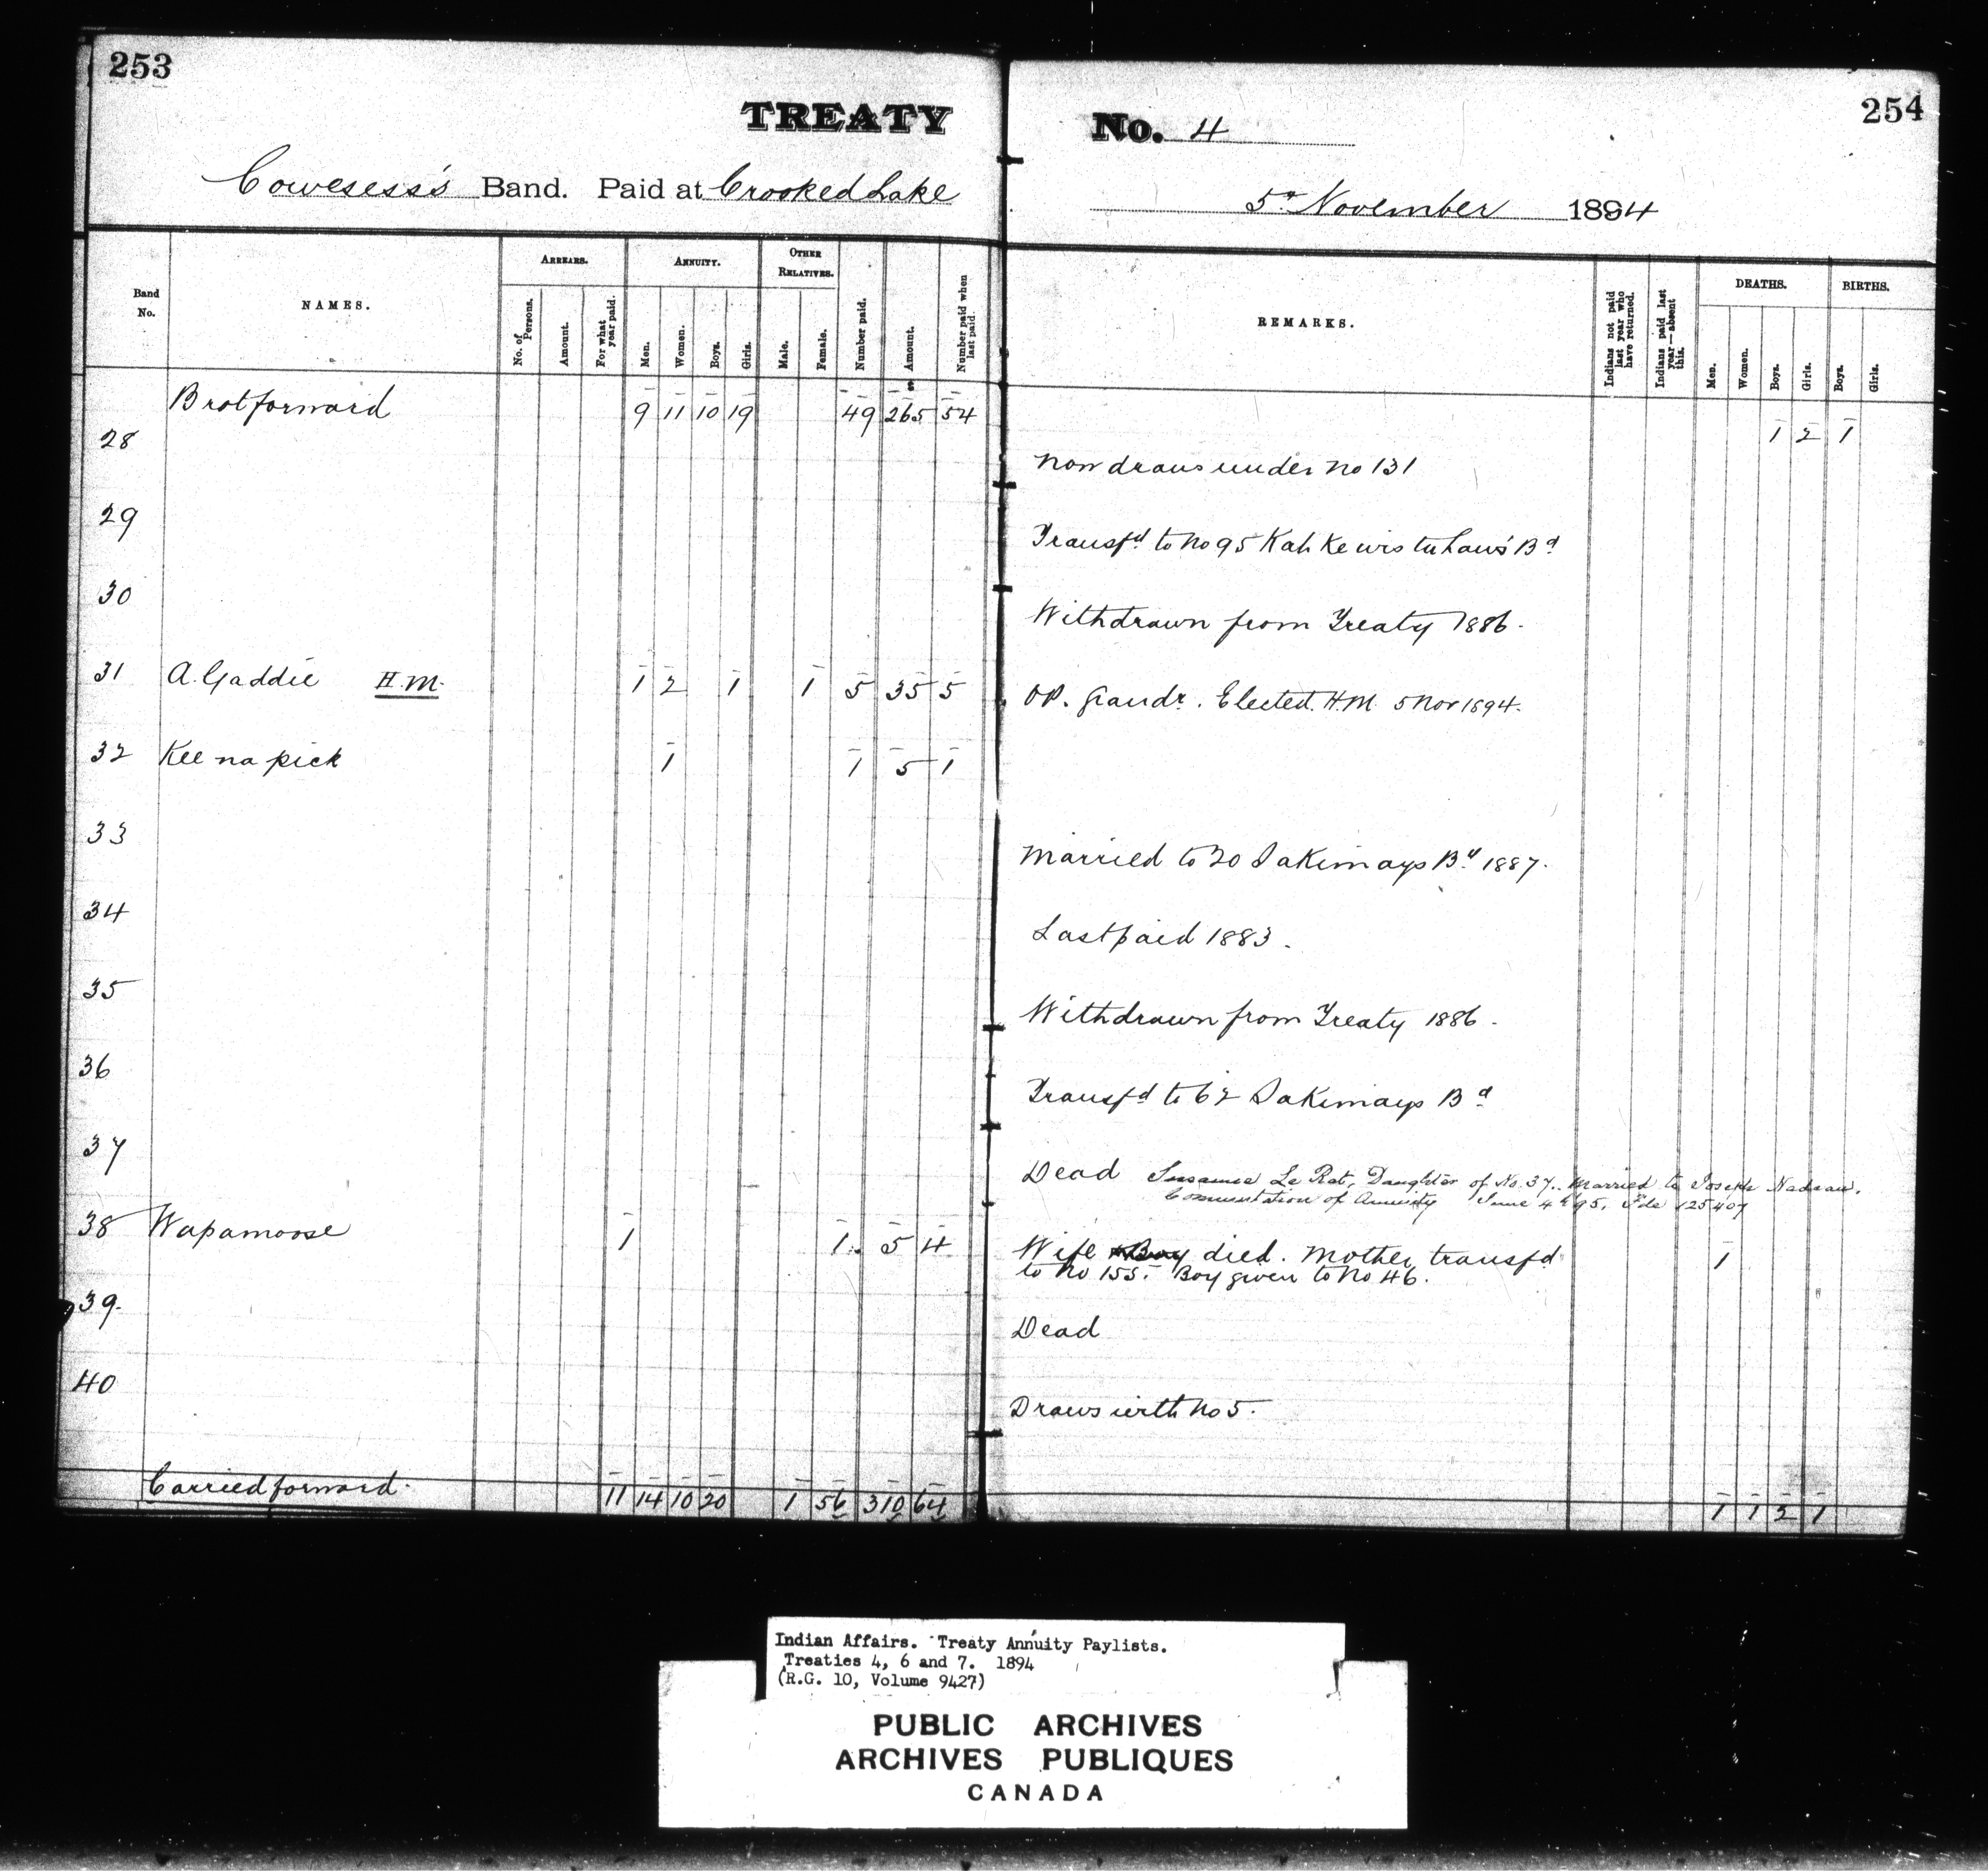 253
254
TREATY No. 4
Cowesess's Band. Paid at Crooked Lake 5th November 1894
Band No.
NAMES.
ARREARS.
No. of Persons.
Amount.
For what year paid.
ANNUITY.
Men.
Women.
Boys.
Girls.
OTHER RELATIVES.
Male.
Female.
Number paid.
Amount.
Number paid when last paid.
REMARKS.
Indians not paid last year who have returned.
Indians paid last year—absent this.
DEATHS.
Men.
Women.
Boys.
Girls.
BIRTHS.
Boys.
Girls.
Brot forward 9 11 10 19 49 265 54 1 2 1
28 now draws under no 131
29 Transfd to no 95 Kah Ke wis tu haws Bd
30 Withdrawn from Treaty 1886.
31 A. Gaddie H.M. 1 2 1 1 5 35 5 Elected H.M. 5 Nov 1894.
32 Kee na pick 1 1 5 1
33 Married to 20 Sakimays Bd 1887.
34 Last paid 1883.
35 Withdrawn from Treaty 1886.
36 Transfd to 62 Sakimays Bd
37 Dead Susanne Le Rat, Daughter of No. 37. Married to Joseph Nadeau.
Commutation of Annuity June 4th 95. File 125407
38 Wapamoose 1 1 5 4 Wife died. Mother transfd 1
to no 155. Boy given to no 46.
39. Dead
40 Draws with no 5.
Carried forward. 11 14 10 20 1 56 310 64 1 1 2 1
Indian Affairs. Treaty Annuity Paylists.
Treaties 4, 6 and 7. 1894
(R.G. 10, Volume 9427)
PUBLIC ARCHIVES
ARCHIVES PUBLIQUES
CANADA